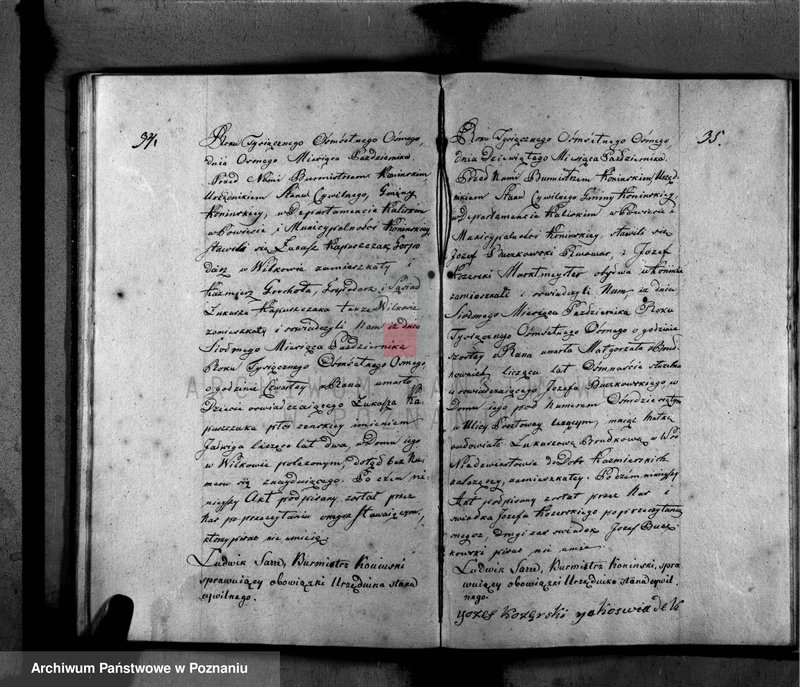 34.
Roku Tysiącznego Ośmsetnego Osmego,
dnia Osmego Miesiąca Października
Przed Nami Burmistrzem Konińskim,
Urzędnikiem Stanu Cywilnego, Gminy
Konińskiey, w Departamencie Kaliskim
w Powiecie i Municypalności Konińskiey
stawili się Łukasz Kapuszczak Gospo
darz w Wilkowie zamieszkały i
Kazimierz Grochola, Gospodarz i Sąsiad
Łukasza Kapuszczaka także w Wilkowie
zamieszkały i oswiadczyli Nam iż dnia
Siodmego Miesiąca Października
Roku Tysiącznego Ośmsetnego Osmego
o godzinie Czwartey z Rana umarło
Dziecie oswiadczaiącego Łukasza Ka
puszczaka płci zenskiey imieniem
Jadwiga liczące lat dwa, w Domu iego
w Wilkowie położonym, dotąd bez Nu
meru się znayduiącego. Po czem ni
nieyszy Akt podpisany został przez
Nas po przeczytaniu onego Stawaiącym,
ktorzy pisać nie umieią
Ludwik Sarre, Burmistrz Koninski
sprawuiący obowiązki Urzędnika stanu
cywilnego.
35.
Roku Tysiącznego Ośmsetnego Osmego,
dnia Dziewiątego Miesiąca Października.
Przed Nami Burmistrzem Konińskim Urzęd
nikiem Stanu Cywilnego Gminy Konińskiey,
w Departamencie Kaliskim w Powiecie i
Municypalności Konińskiey, stawili się
Jozef Buczkowski i Jozef
Kozerski obydwa w Koninie
zamieszkali i oswiadczyli Nam, iż dnia
Siodmego Miesiąca Października Roku
Tysiącznego Ośmsetnego Osmego o godzinie
szostey z Rana umarła Małgorzata
licząca lat
u oswiadczaiącego Jozefa Buczkowskiego, w
Domu iego pod Numerem
w Ulicy Pocztowey leżącym,
Łukaszowa
do Dobr Kazmierskich
należącey, zamieszkałey. Poczem ninieyszy
Akt podpisany został przez Nas i
swiadka Jozefa Kozerskiego po przeczytaniu
onegoż, drugi zaś swiadek Jozef Bucz
kowski pisać nie umie.
Ludwik Sarre, Burmistrz Koninski, spra
wuiący obowiązki Urzędnika stanu cywil
nego.
Jozef Kozerski jako swiadek
ARCHIWUM PAŃSTWOWE
W POZNANIU
Archiwum Państwowe w Poznaniu